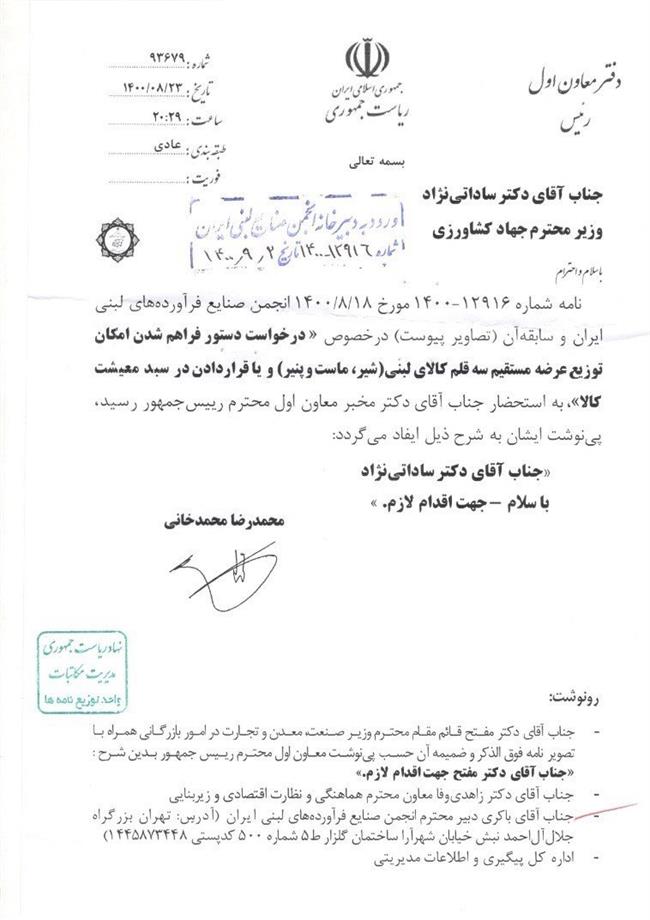 دفتر معاون اول
رئیس
جمهوری اسلامی ایران
ریاست جمهوری
شماره: ۹۳۶۷۹
تاریخ: ۱۴۰۰/۰۸/۲۳
ساعت: ۲۰:۲۹
طبقه بندی: عادی
فوریت:
بسمه تعالی
جناب آقای دکتر ساداتی‌نژاد
وزیر محترم جهاد کشاورزی
ورود به دبیرخانه انجمن صنایع لبنی ایران
شماره ۱۴۰۰-۱۲۹۱۶ تاریخ ۱۴۰۰/۹/۲
باسلام و احترام
نامه شماره ۱۲۹۱۶-۱۴۰۰ مورخ ۱۴۰۰/۸/۱۸ انجمن صنایع فرآورده‌های لبنی
ایران و سابقه‌آن (تصاویر پیوست) درخصوص « درخواست دستور فراهم شدن امکان
توزیع عرضه مستقیم سه قلم کالای لبنی(شیر، ماست و پنیر) و یا قراردادن در سبد معیشت
کالا»، به استحضار جناب آقای دکتر مخبر معاون اول محترم رییس‌جمهور رسید،
پی‌نوشت ایشان به شرح ذیل ایفاد می‌گردد:
«جناب آقای دکتر ساداتی‌نژاد
با سلام – جهت اقدام لازم. »
محمدرضا محمدخانی
نهاد ریاست جمهوری
مدیریت مکاتبات
واحد توزیع نامه ها
رونوشت:
- جناب آقای دکتر مفتح قائم مقام محترم وزیر صنعت، معدن و تجارت در امور بازرگانی همراه با
تصویر نامه فوق الذکر و ضمیمه آن حسب پی‌نوشت معاون اول محترم رییس جمهور بدین شرح :
«جناب آقای دکتر مفتح جهت اقدام لازم.»
- جناب آقای دکتر زاهدی‌وفا معاون محترم هماهنگی و نظارت اقتصادی و زیربنایی
- جناب آقای باکری دبیر محترم انجمن صنایع فرآورده‌های لبنی ایران (آدرس: تهران بزرگراه
جلال‌آل‌احمد نبش خیابان شهرآرا ساختمان گلزار ط۵ شماره ۵۰۰ کدپستی ۱۴۴۵۸۷۳۴۴۸)
- اداره کل پیگیری و اطلاعات مدیریتی